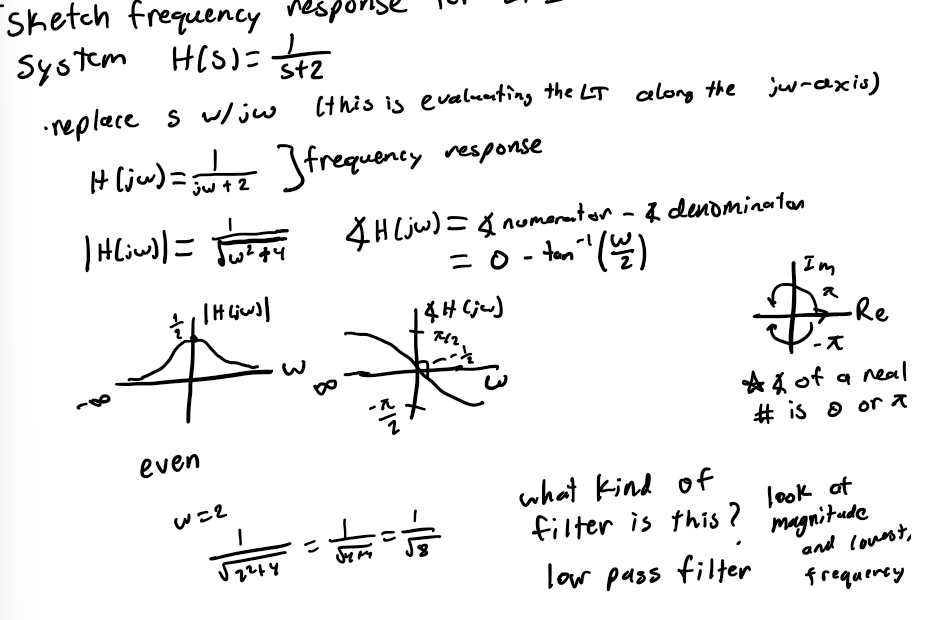 Sketch frequency response for
system H(s) = 1/(s+2)
· replace s w/ jw (this is evaluating the LT along the jw-axis)
H(jw) = 1/(jw + 2) } frequency response
|H(jw)| = 1/√(w²+4)
∡H(jw) = ∡ numerator - ∡ denominator
= 0 - tan⁻¹(w/2)
1/2 |H(jw)|
w
-∞
∡H(jw)
π/2
-1/2
∞
w
-π/2
Im
π
Re
-π
☆ ∡ of a real
# is 0 or π
even
w=2
1/√(2²+4) = 1/√(4+4) = 1/√8
what kind of
filter is this?
low pass filter
look at
magnitude
and lowest
frequency